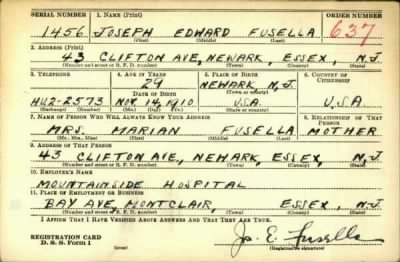 SERIAL NUMBER 1. NAME (Print) ORDER NUMBER
1456 JOSEPH EDWARD FUSELLA 637
(First) (Middle) (Last)
2. ADDRESS (Print)
43 CLIFTON AVE, NEWARK, ESSEX, N.J.
(Number and street or R. F. D. number) (Town) (County) (State)
3. TELEPHONE 4. AGE IN YEARS 5. PLACE OF BIRTH 6. COUNTRY OF CITIZENSHIP
29 NEWARK N.J.
DATE OF BIRTH (Town or county)
HU2-2573 NOV. 14, 1910 U.S.A. U.S.A.
(Exchange) (Number) (Mo.) (Day) (Yr.) (State or country)
7. NAME OF PERSON WHO WILL ALWAYS KNOW YOUR ADDRESS 8. RELATIONSHIP OF THAT PERSON
MRS. MARIAN FUSELLA MOTHER
(Mr., Mrs., Miss) (First) (Middle) (Last)
9. ADDRESS OF THAT PERSON
43 CLIFTON AVE, NEWARK, ESSEX, N.J.
(Number and street or R. F. D. number) (Town) (County) (State)
10. EMPLOYER'S NAME
MOUNTAINSIDE HOSPITAL
11. PLACE OF EMPLOYMENT OR BUSINESS
BAY AVE, MONTCLAIR, ESSEX, N.J.
(Number and street or R. F. D. number) (Town) (County) (State)
I AFFIRM THAT I HAVE VERIFIED ABOVE ANSWERS AND THAT THEY ARE TRUE.
REGISTRATION CARD
D. S. S. Form 1 (over) Jos. E. Fusella
(Registrant's signature)